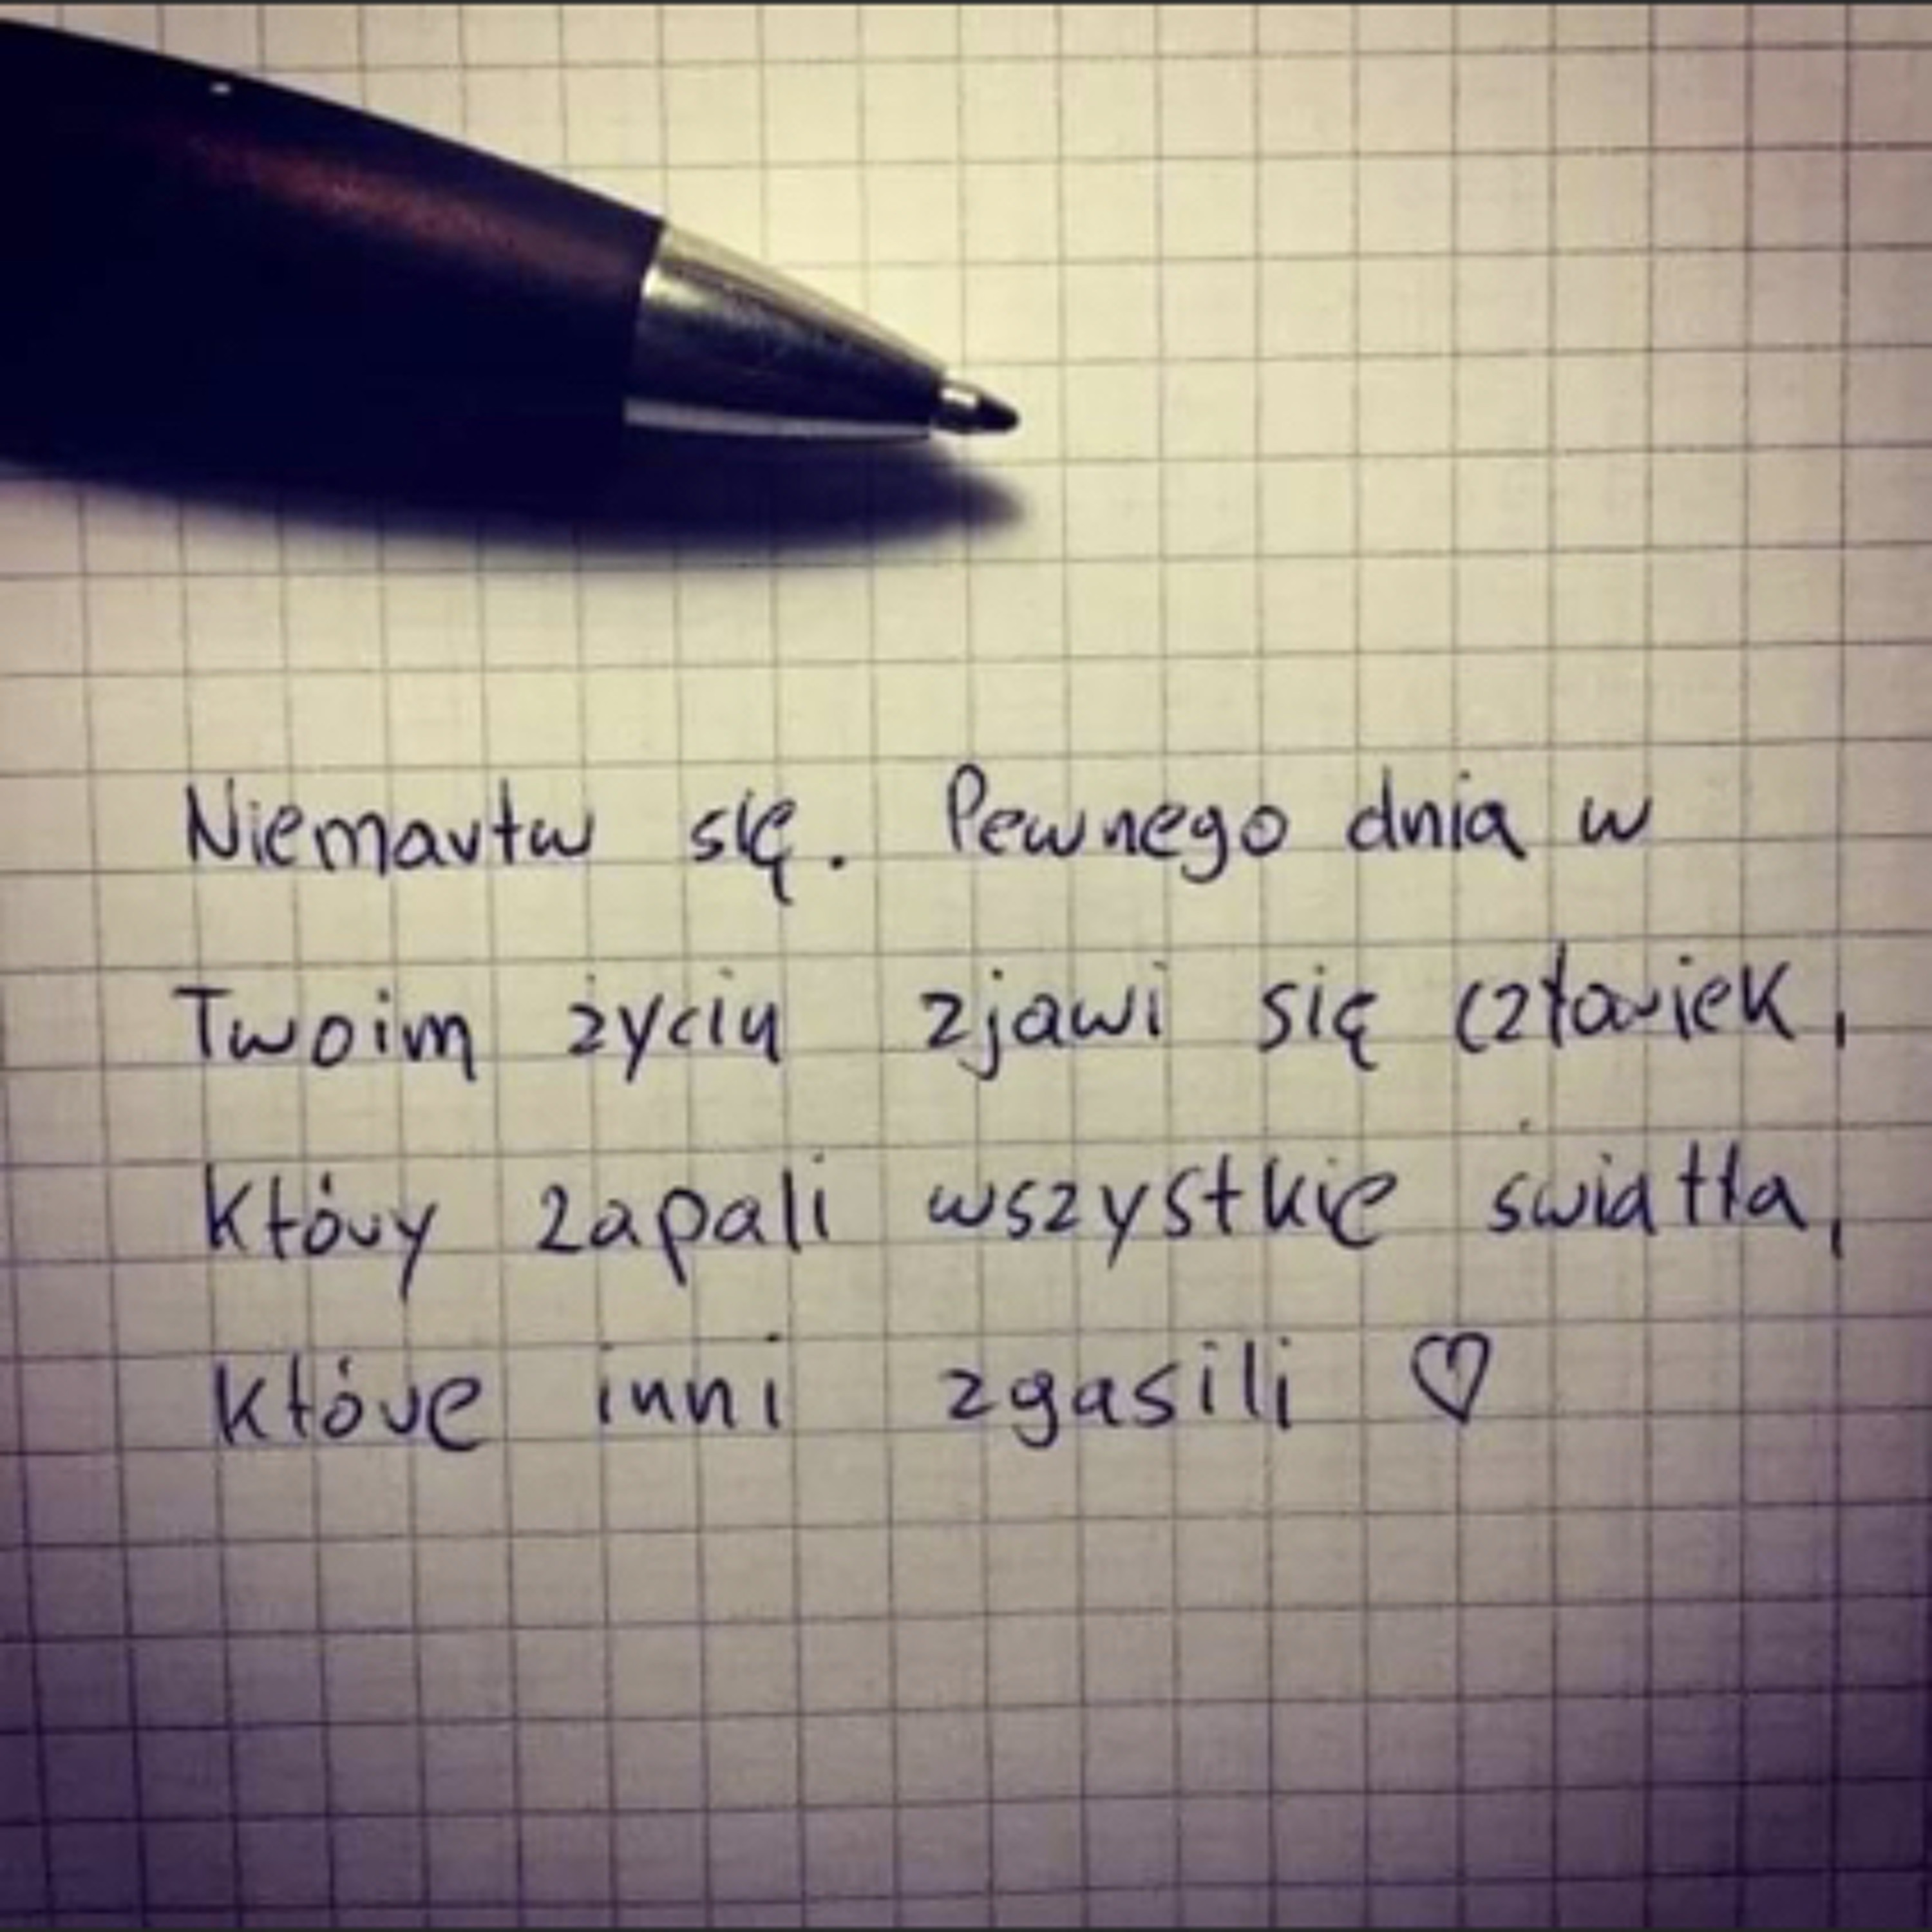 Niemartw się. Pewnego dnia w
Twoim życiu zjawi się człowiek,
który zapali wszystkie światła,
które inni zgasili ♡